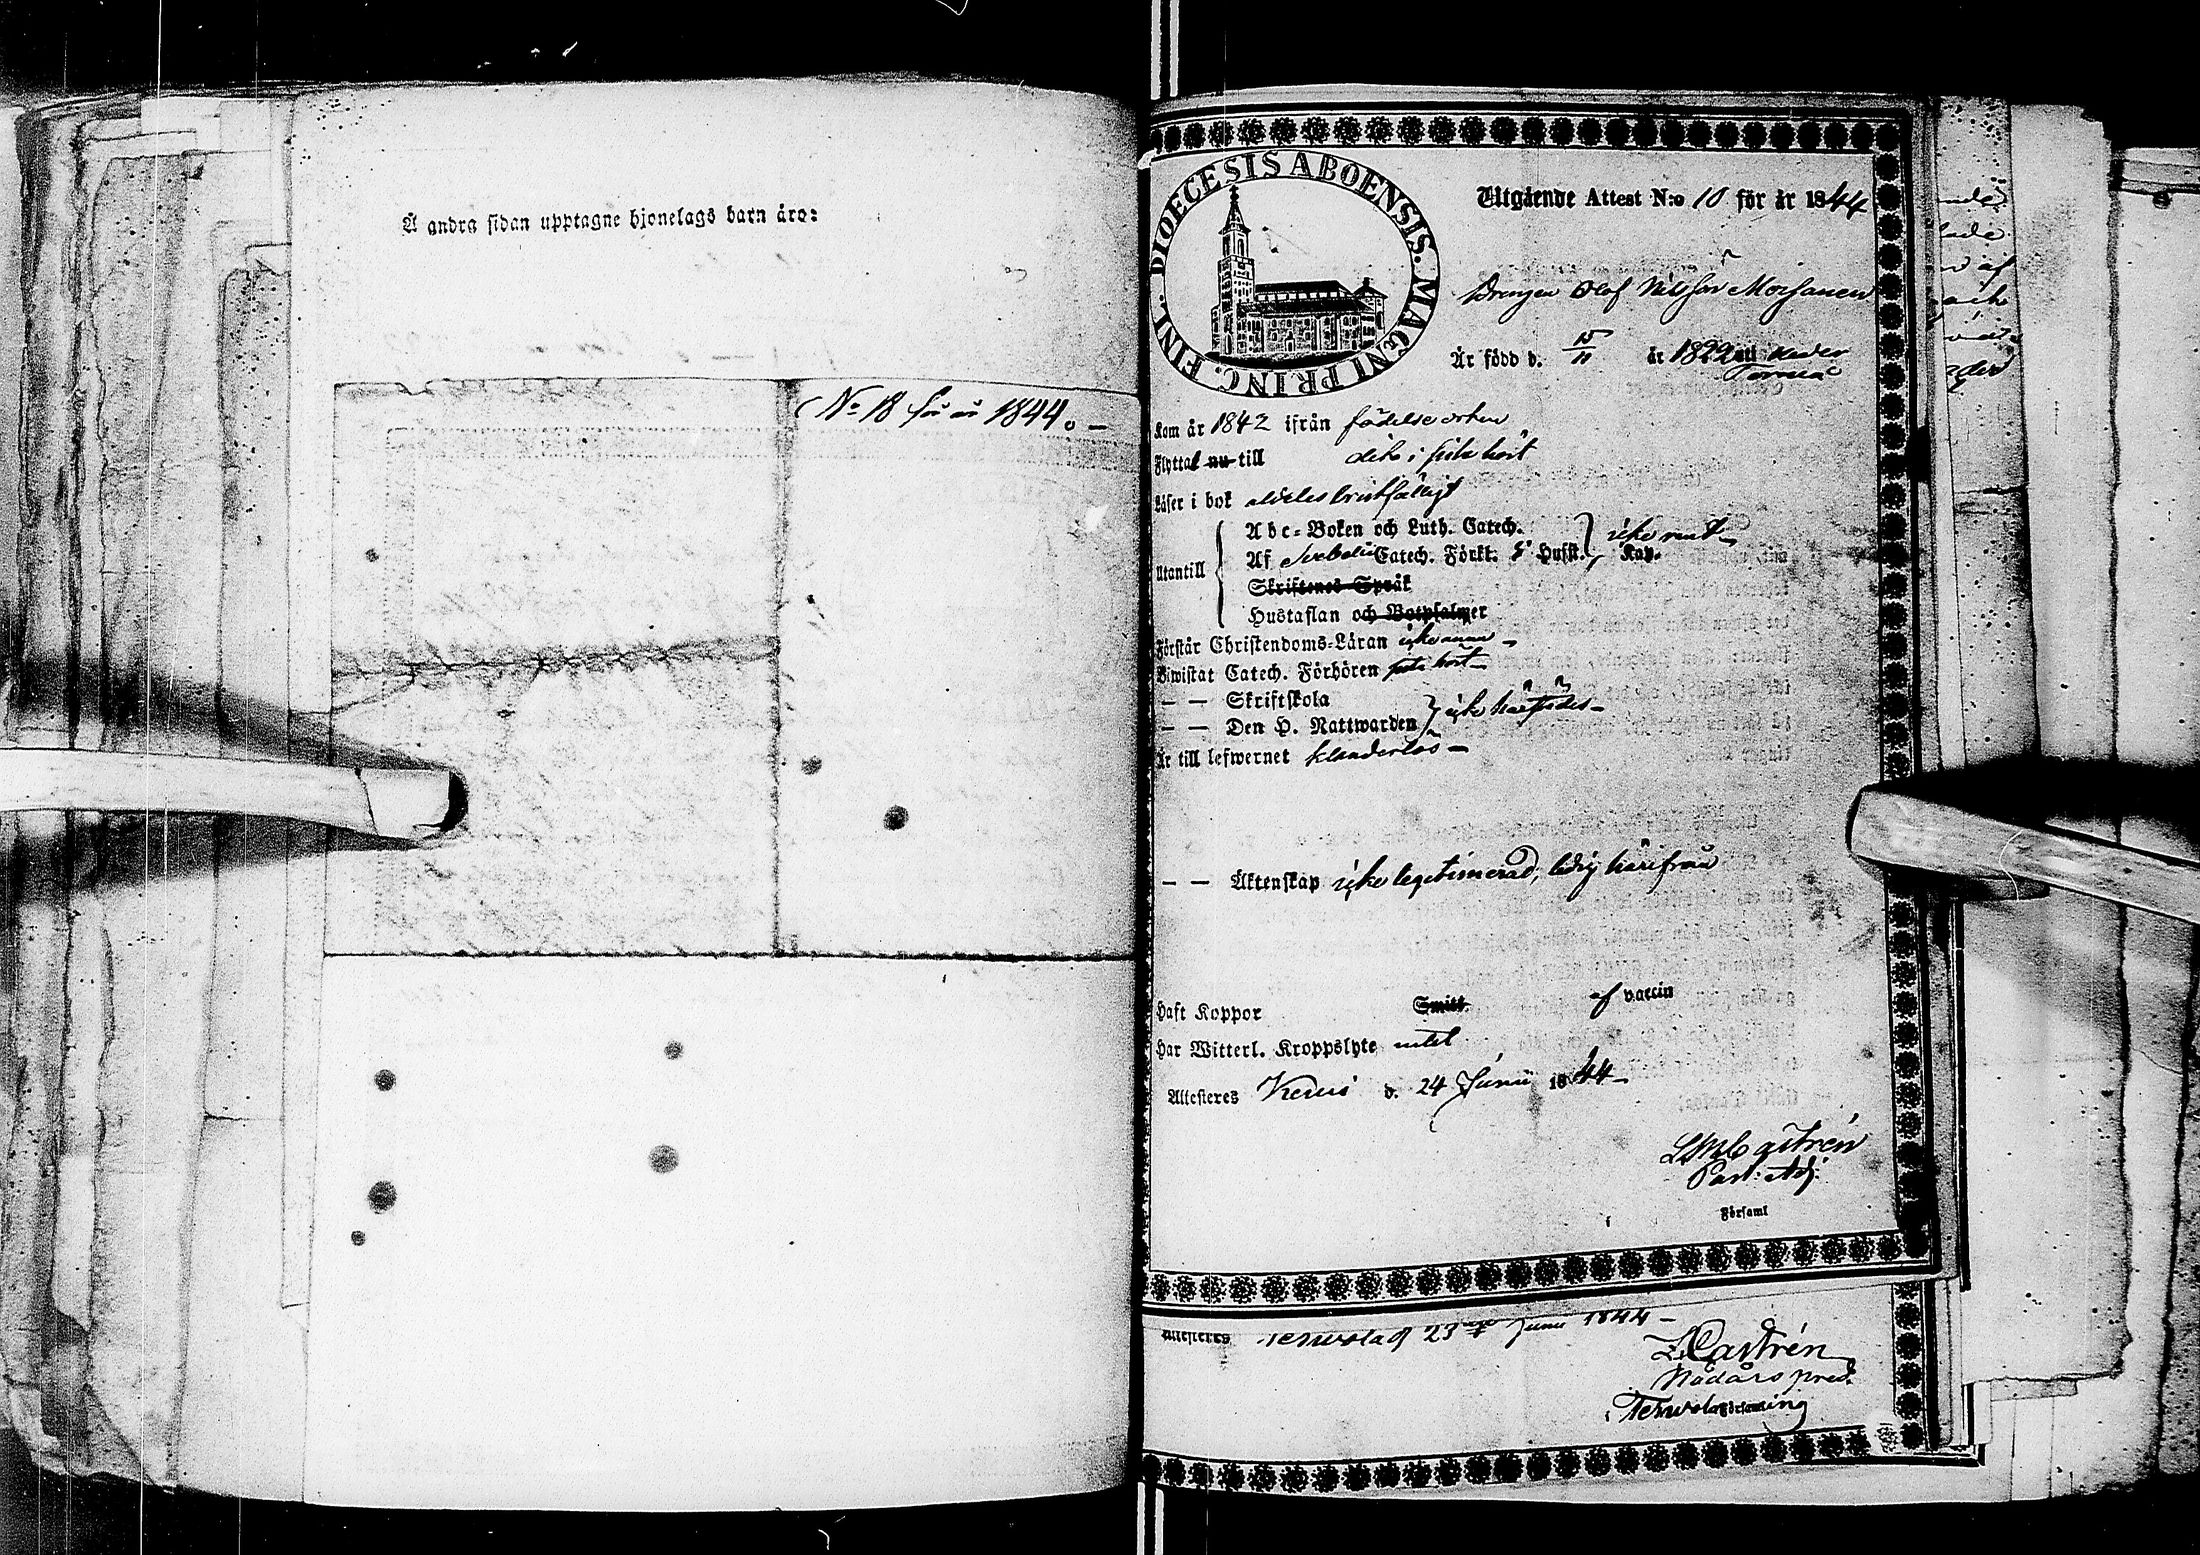 Å andra sidan upptagne hjonelags barn äro:
No 18 för år 1844. —
DIOECESIS ABOENSIS. MAGNI PRINC. FINL.
Utgående Attest N:o 10 för år 1844
Drengen Olof Nilsson Moisanen
Är född d. 15/11 år 1822 uti Neder
Torneå
Kom år 1842 ifrån födelseorten
Flyttat nu till dito i sista höst
Läser i bok alldeles bristfälligt
Utantill
Abc-Boken och Luth. Catech.
Af Svebelii Catech. Förkl. Hufst. Kap. icke rent —
Skriftenes Språk
Hustaflan och Botpsalmer
Förstår Christendoms-Läran icke
Biwistat Catech. Förhören sista höst —
— — Skriftskola
— — Den H. Nattwarden icke härstädes —
Är till lefwernet klanderlös —
— — Äktenskap icke legitimerad, ledig härifrån
Haft Koppor Smitt af vaccin
Har Witterl. Kroppslyte intet
Attesteras Kemi d. 24 Junii 1844 —
L M Castrén
Past. Adj.
i Församl
Attesteras Tervola d 23 Junii 1844 —
Castrén
Nådårs pred.
i Tervola Församling